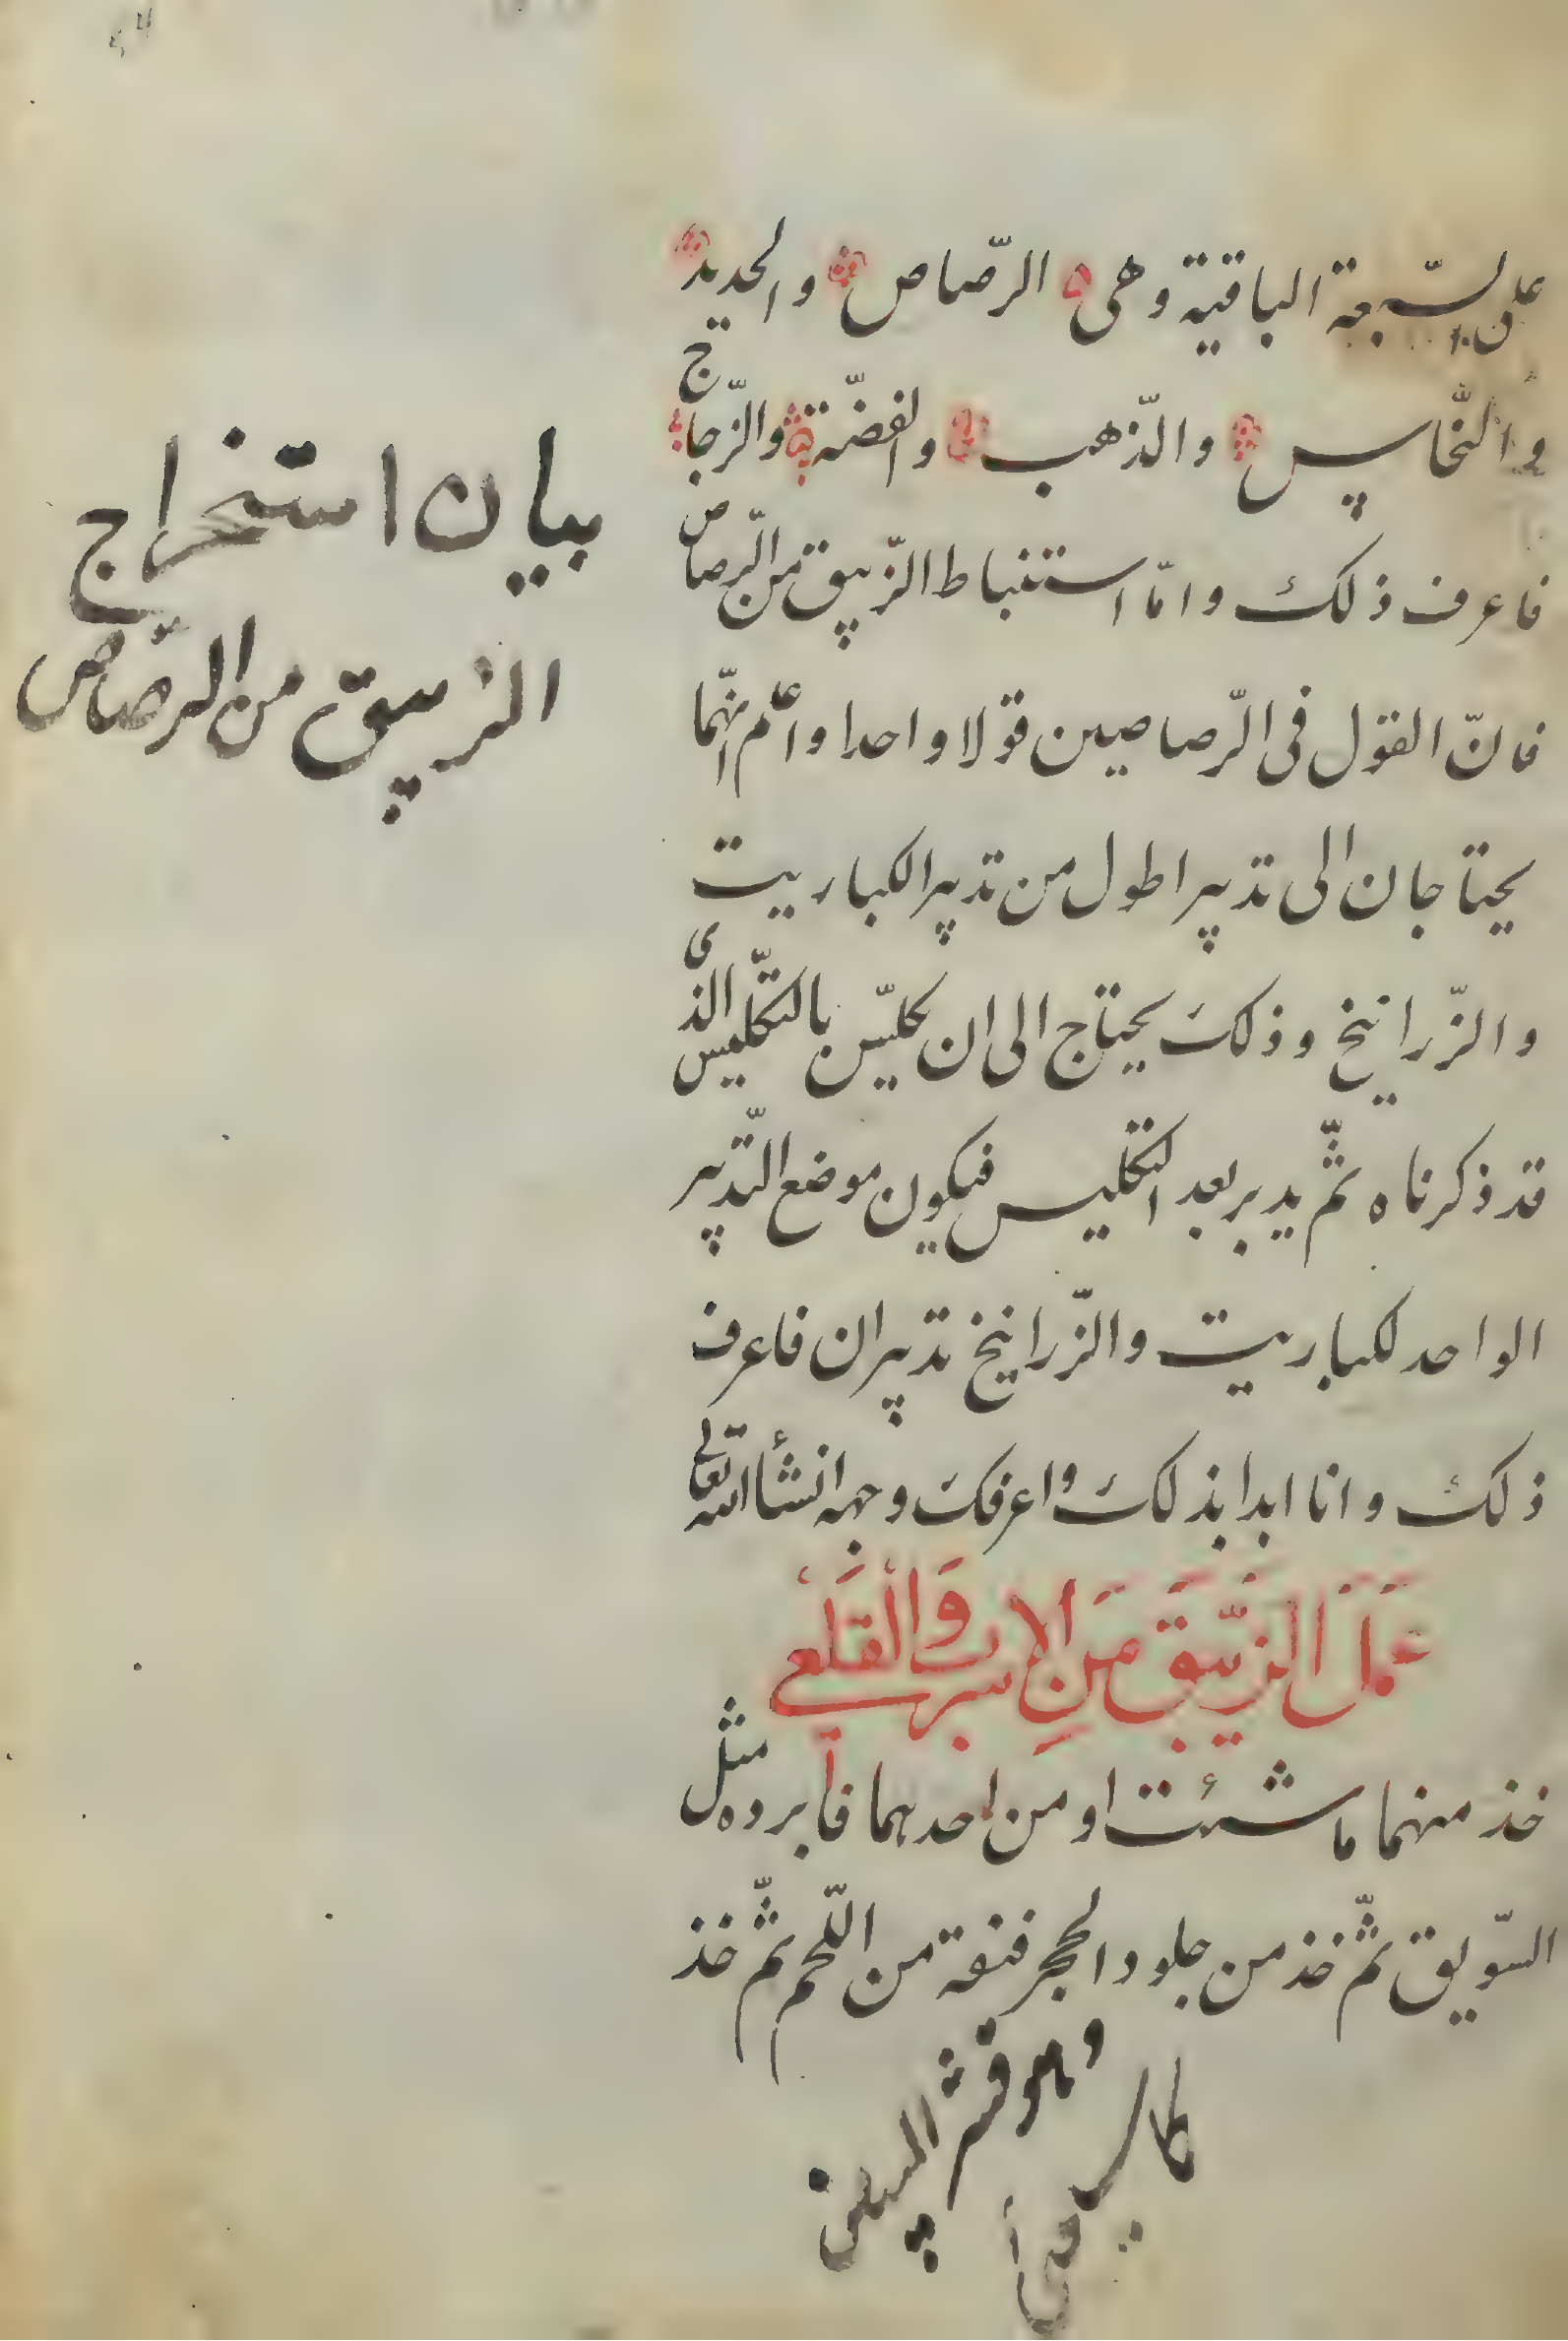 على السّبعة الباقية وهى الرّصاص والحديد
والنّحاس والذّهب والفضّة والزّجاج
فاعرف ذلك وامّا استنباط الزّيبق من الرّصاص
فانّ القول فى الرّصاصين قولا واحدا واعلم انّهما
يحتاجان الى تدبير اطول من تدبير الكباريت
والزّرانيخ وذلك يحتاج الى ان يكلّس بالتّكليس الذى
قد ذكرناه ثمّ يدبر بعد التكليس فيكون موضع التّدبير
الواحد لكباريت والزّرانيخ تدبيران فاعرف
ذلك وانا ابدا بذلك واعرفك وجهه انشأ الله تعالى
عمل الزّيبق من الاسرب والقلعى
خذ منهما ما شئت او من احدهما فابرده مثل
السّويق ثمّ خذ من جلود الحجر فنقه من اللّحم ثمّ خذ
وهو قشر البيض
بيان استخراج
الزيبق من الرّصاص